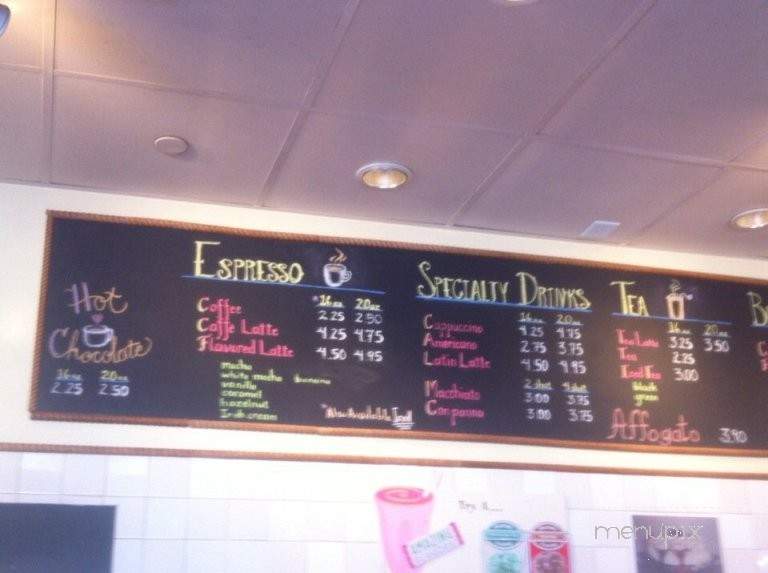 Hot
Chocolate
16oz 20oz
2.25 2.50
Espresso
*16oz 20oz
Coffee 2.25 2.50
Caffe Latte 4.25 4.75
Flavored Latte 4.50 4.95
mocha
white mocha banana
vanilla
caramel
hazelnut
Irish cream
*Also Available Iced
Specialty Drinks
16oz 20oz
Cappuccino 4.25 4.75
Americano 2.75 3.75
Latin Latte 4.50 4.95
2 shot 4 shot
Macchiato 3.00 3.75
Con panna 3.00 3.75
Tea
16oz 20oz
Tea Latte 3.25 3.50
Tea 2.25
Iced Tea 3.00
black
green
Affogato 3.90
Try it....
menupix